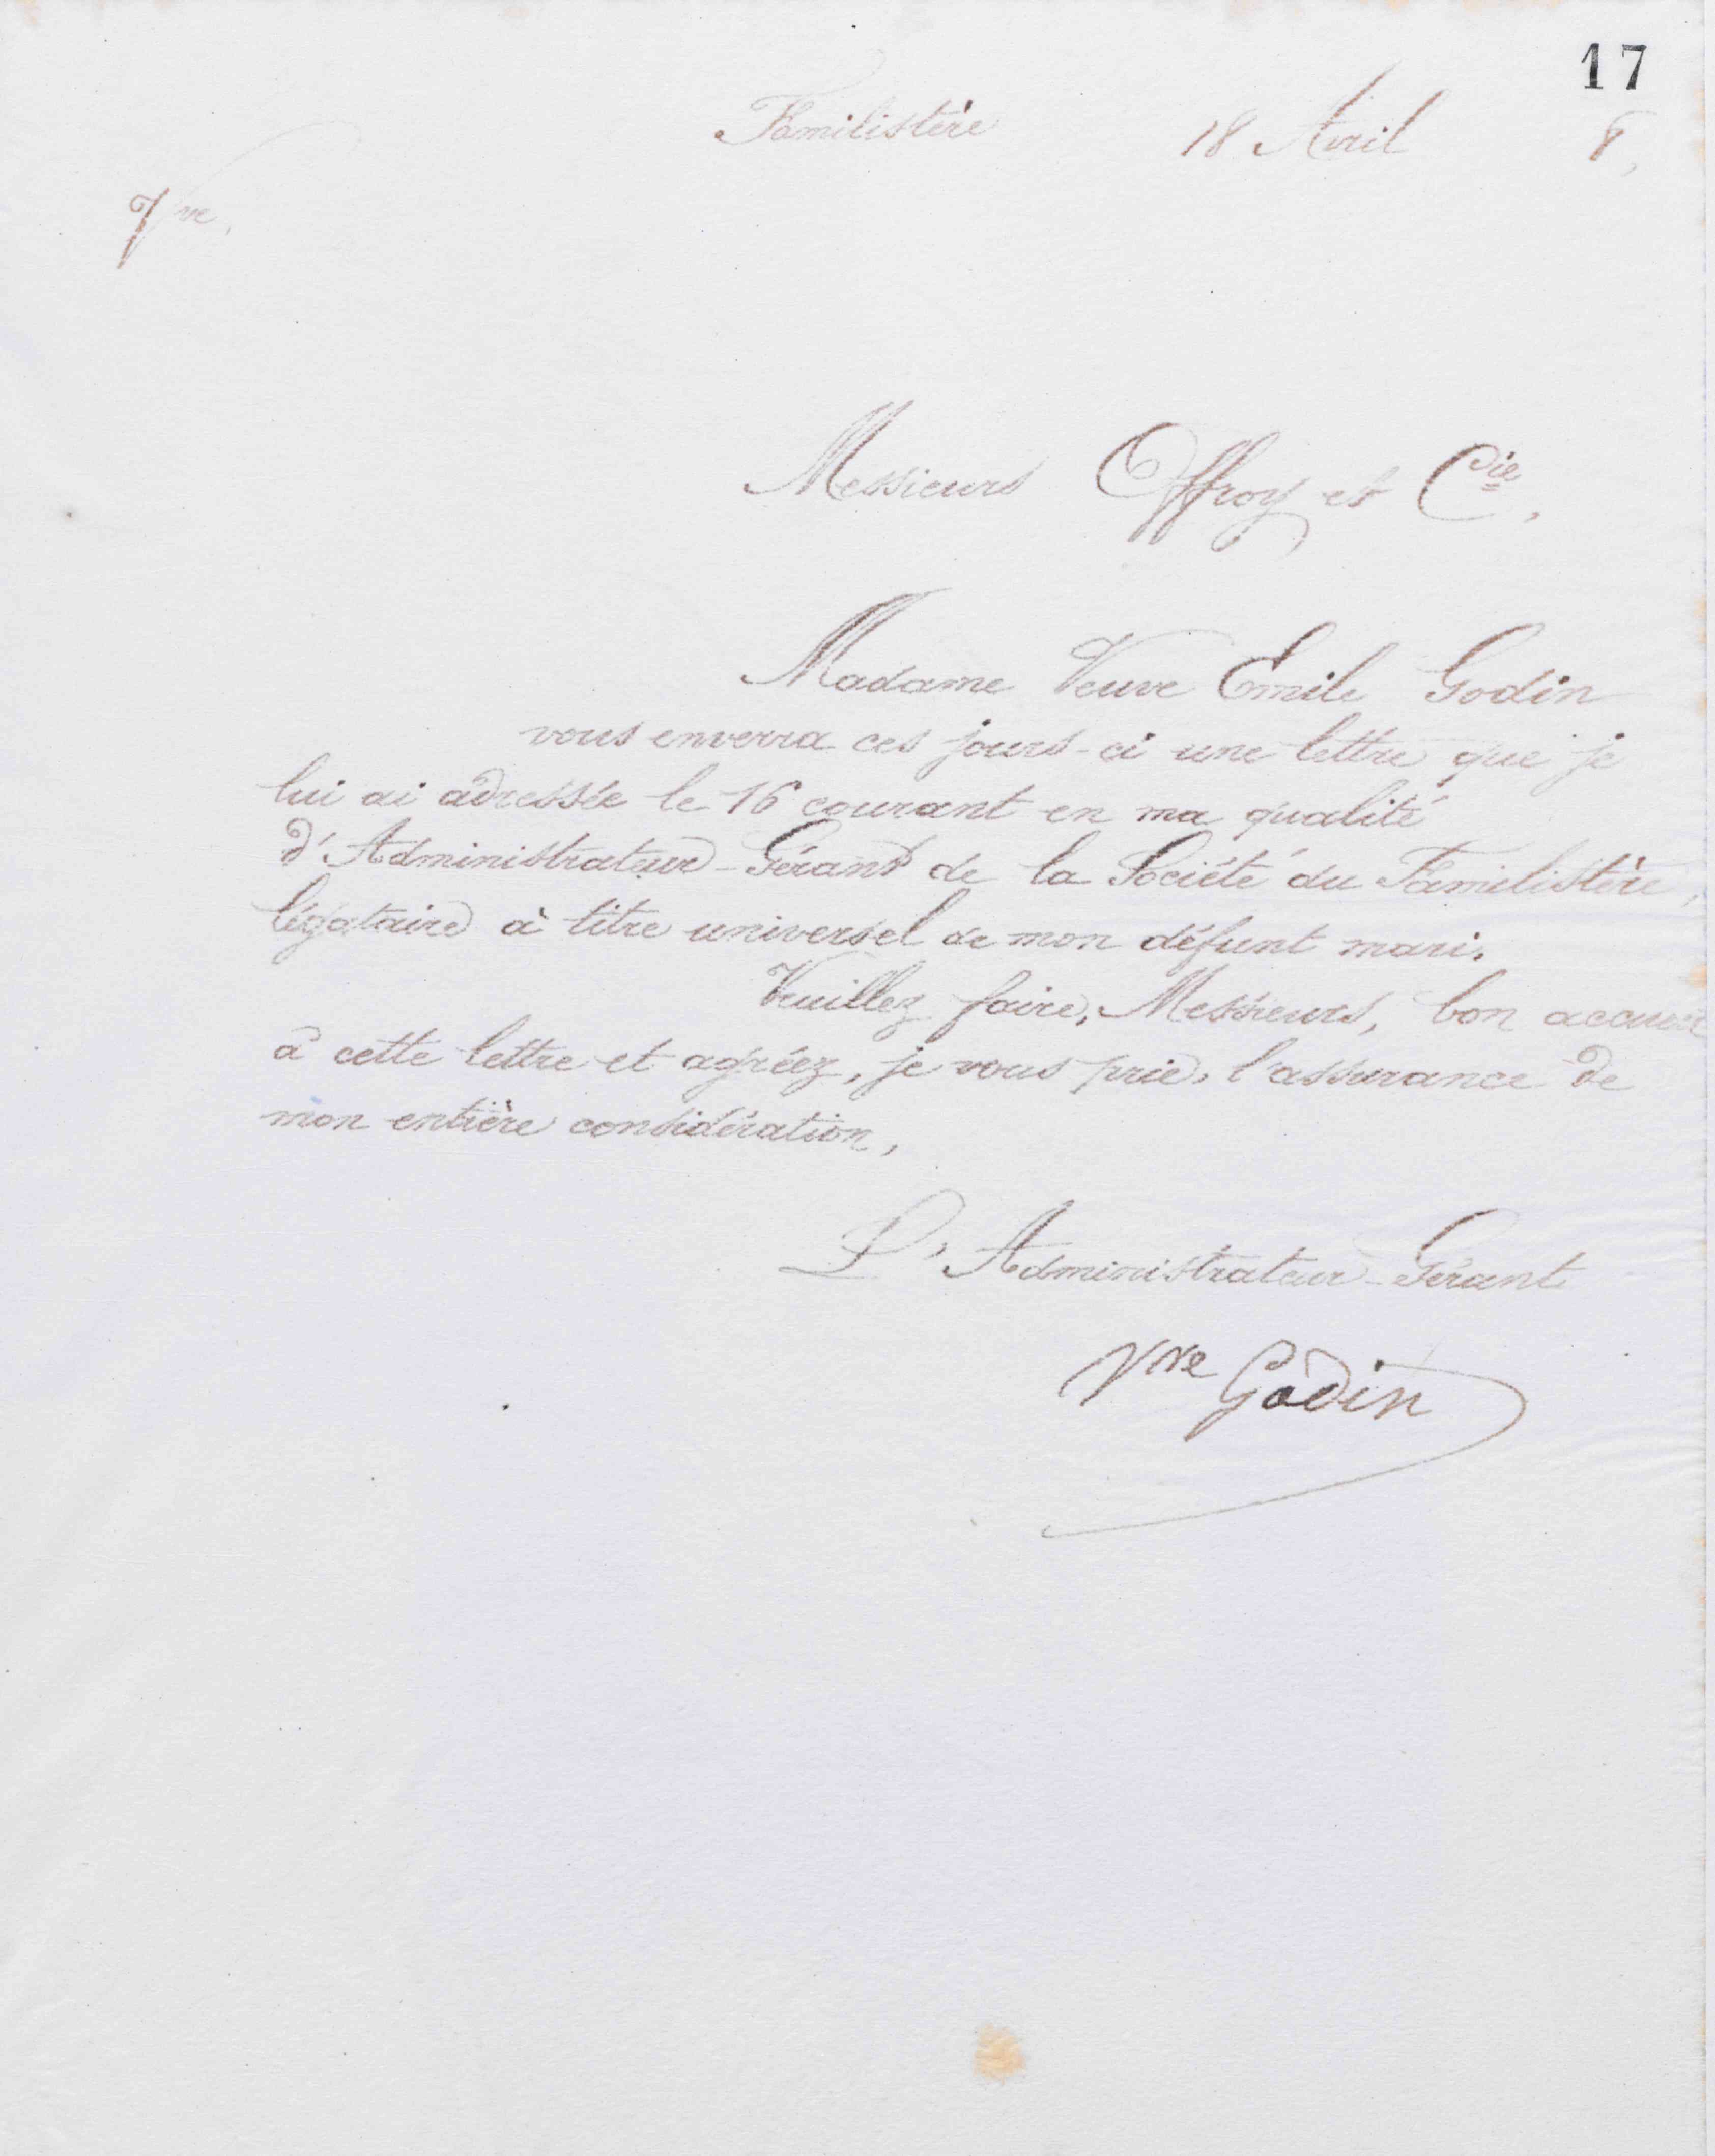 17
Familistère 18 Avril 8,
Vve,
Messieurs Offroy et Cie,
Madame Veuve Emile Godin
vous enverra ces jours-ci une lettre que je
lui ai adressée le 16 courant en ma qualité
d'Administrateur-Gérant de la Société du Familistère,
légataire à titre universel de mon défunt mari.
Veuillez faire, Messieurs, bon accueil
à cette lettre et agréez, je vous prie, l'assurance de
mon entière considération,
L'Administrateur-Gérant
Vve Godin